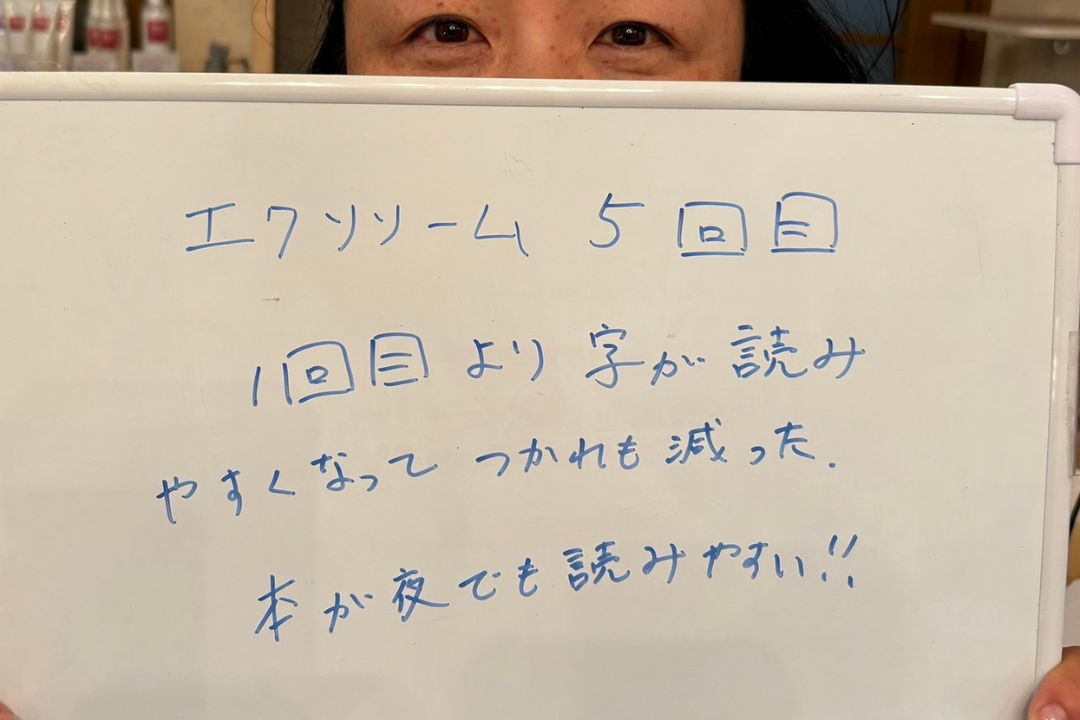 エクソソーム 5回目
1回目より字が読み
やすくなって つかれも減った.
本が夜でも読みやすい!!